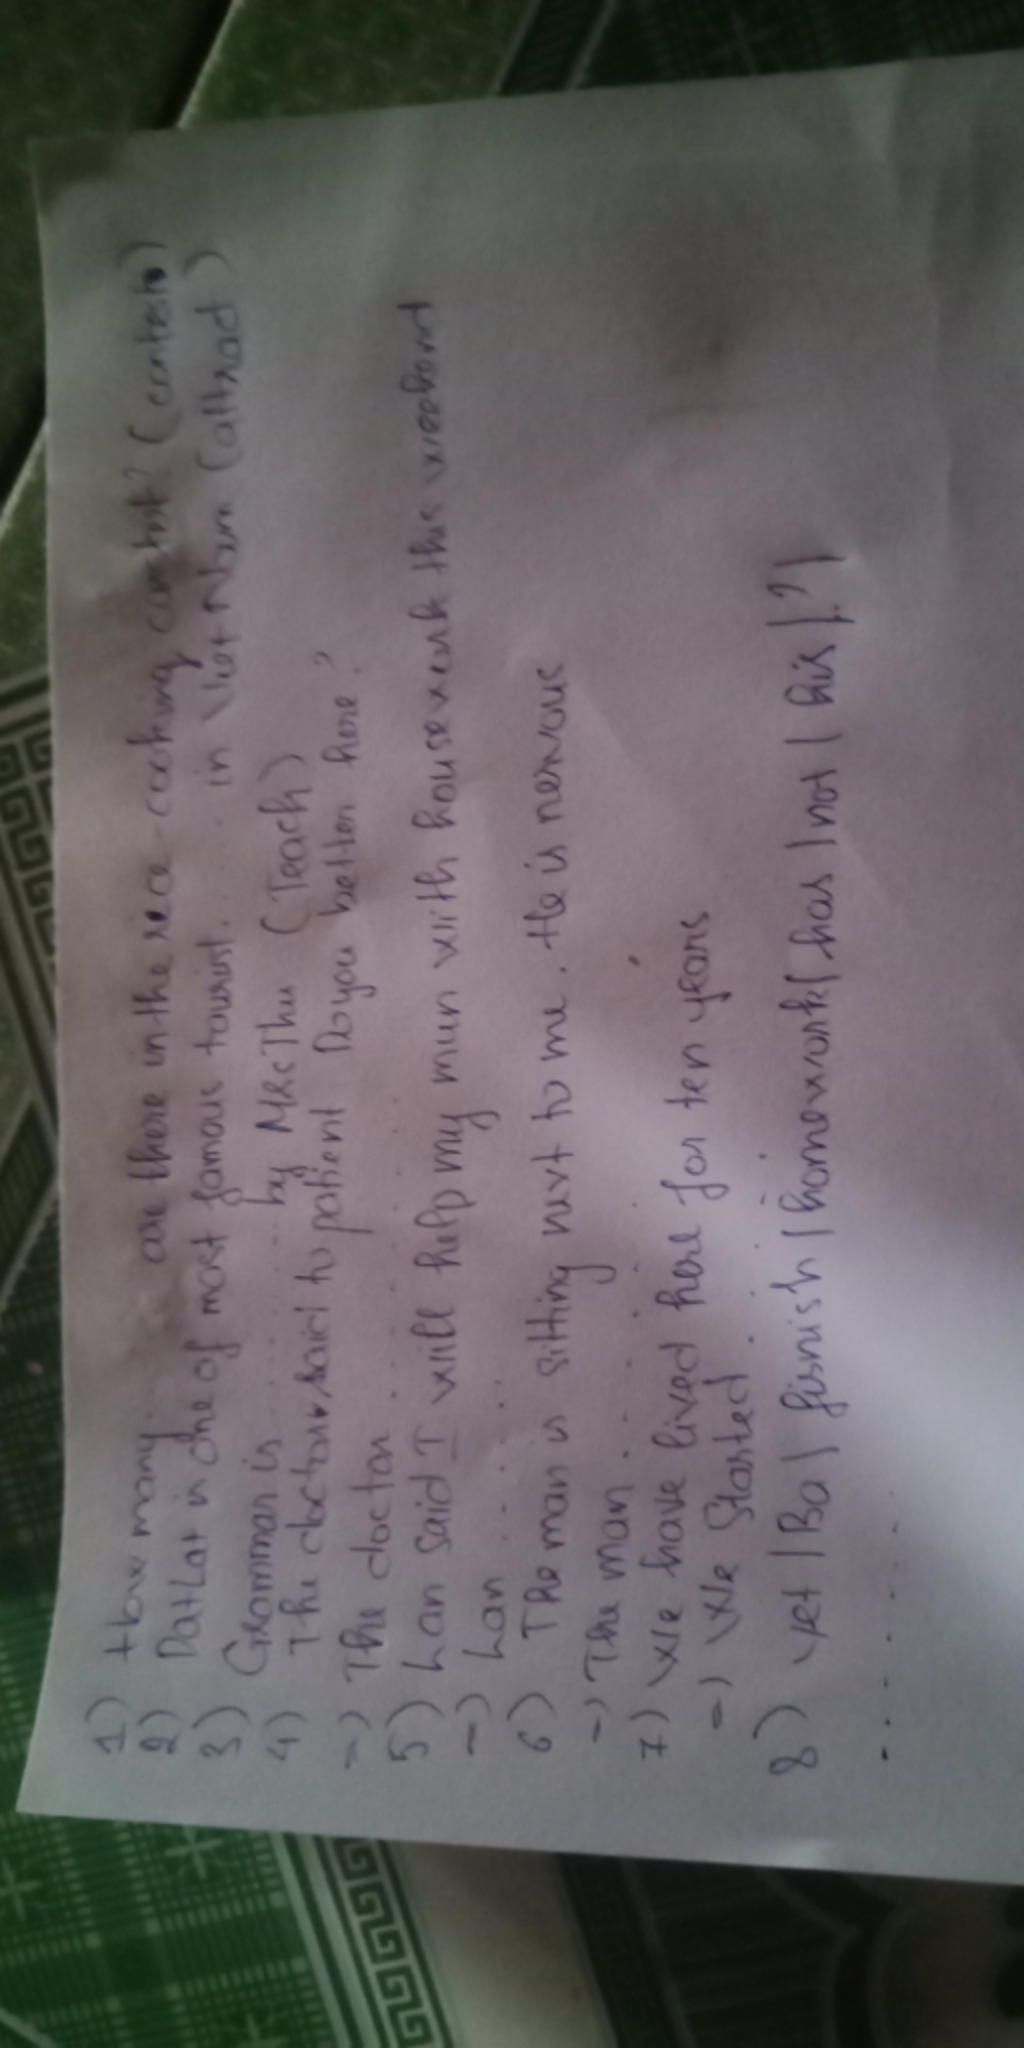 1) How many ....... are there in the rice-cooking contest? (contest)
2) DatLat is one of most famous tourist....... in Viet Nam (attract)
3) Grammar is ....... by MRs Thu (Teach)
4) The doctor said to patient Do you better here?
-) The doctor .......
5) Lan said I will help my mun with housework this weekont
-) Lan .......
6) The man is sitting next to me. He is nervous
-) The man .......
7) We have lived here for ten years
-) We Started .......
8) yet | Ba | finish | homework | has | not | his |.?|
.......